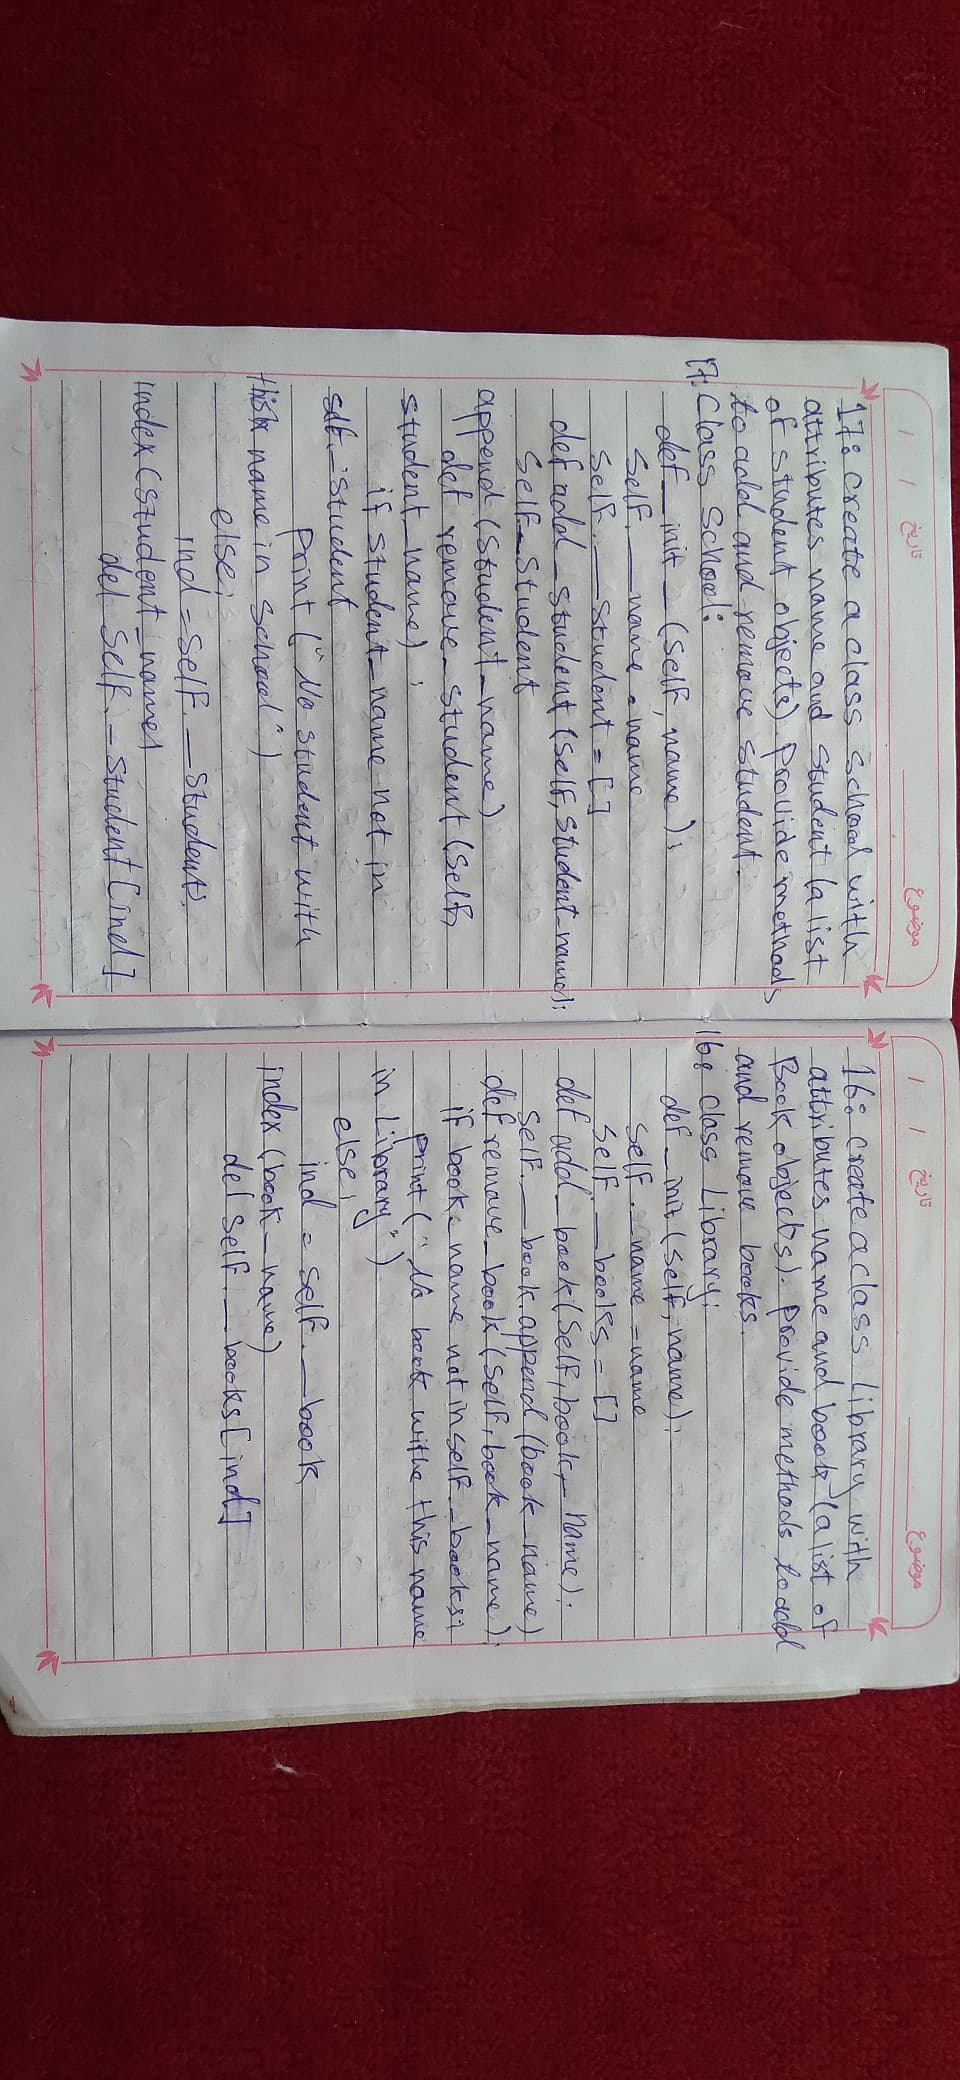 موضوع
تاریخ / /
17: create a class school with
attributes name and student (a list
of student objects). Provide methods
to add and remove student.
17: Class School:
def __init__(self, name):
self.__name = name
self.__student = []
def add_student(self, student_name):
self__student
append(student_name)
def remove_student(self,
student_name):
if student_name not in
self.__student
Print("No student with
this name in school")
else:
ind = self.__student).
index(student_name)
del self.__student[ind]
موضوع
تاریخ / /
16: create a class Library with
attributes name and book (a list of
Book objects). Provide methods to add
and remove books.
16: class Library:
def __init(self, name):
self.__name = name
self.__books = []
def add_book(self, book_name):
self.__book.append(book_name)
def remove_book(self, book_name):
if book_name not in self.__books:
print("No book withe this name
in Library")
else:
ind = self.__book
index(book_name)
del self.__books[ind]